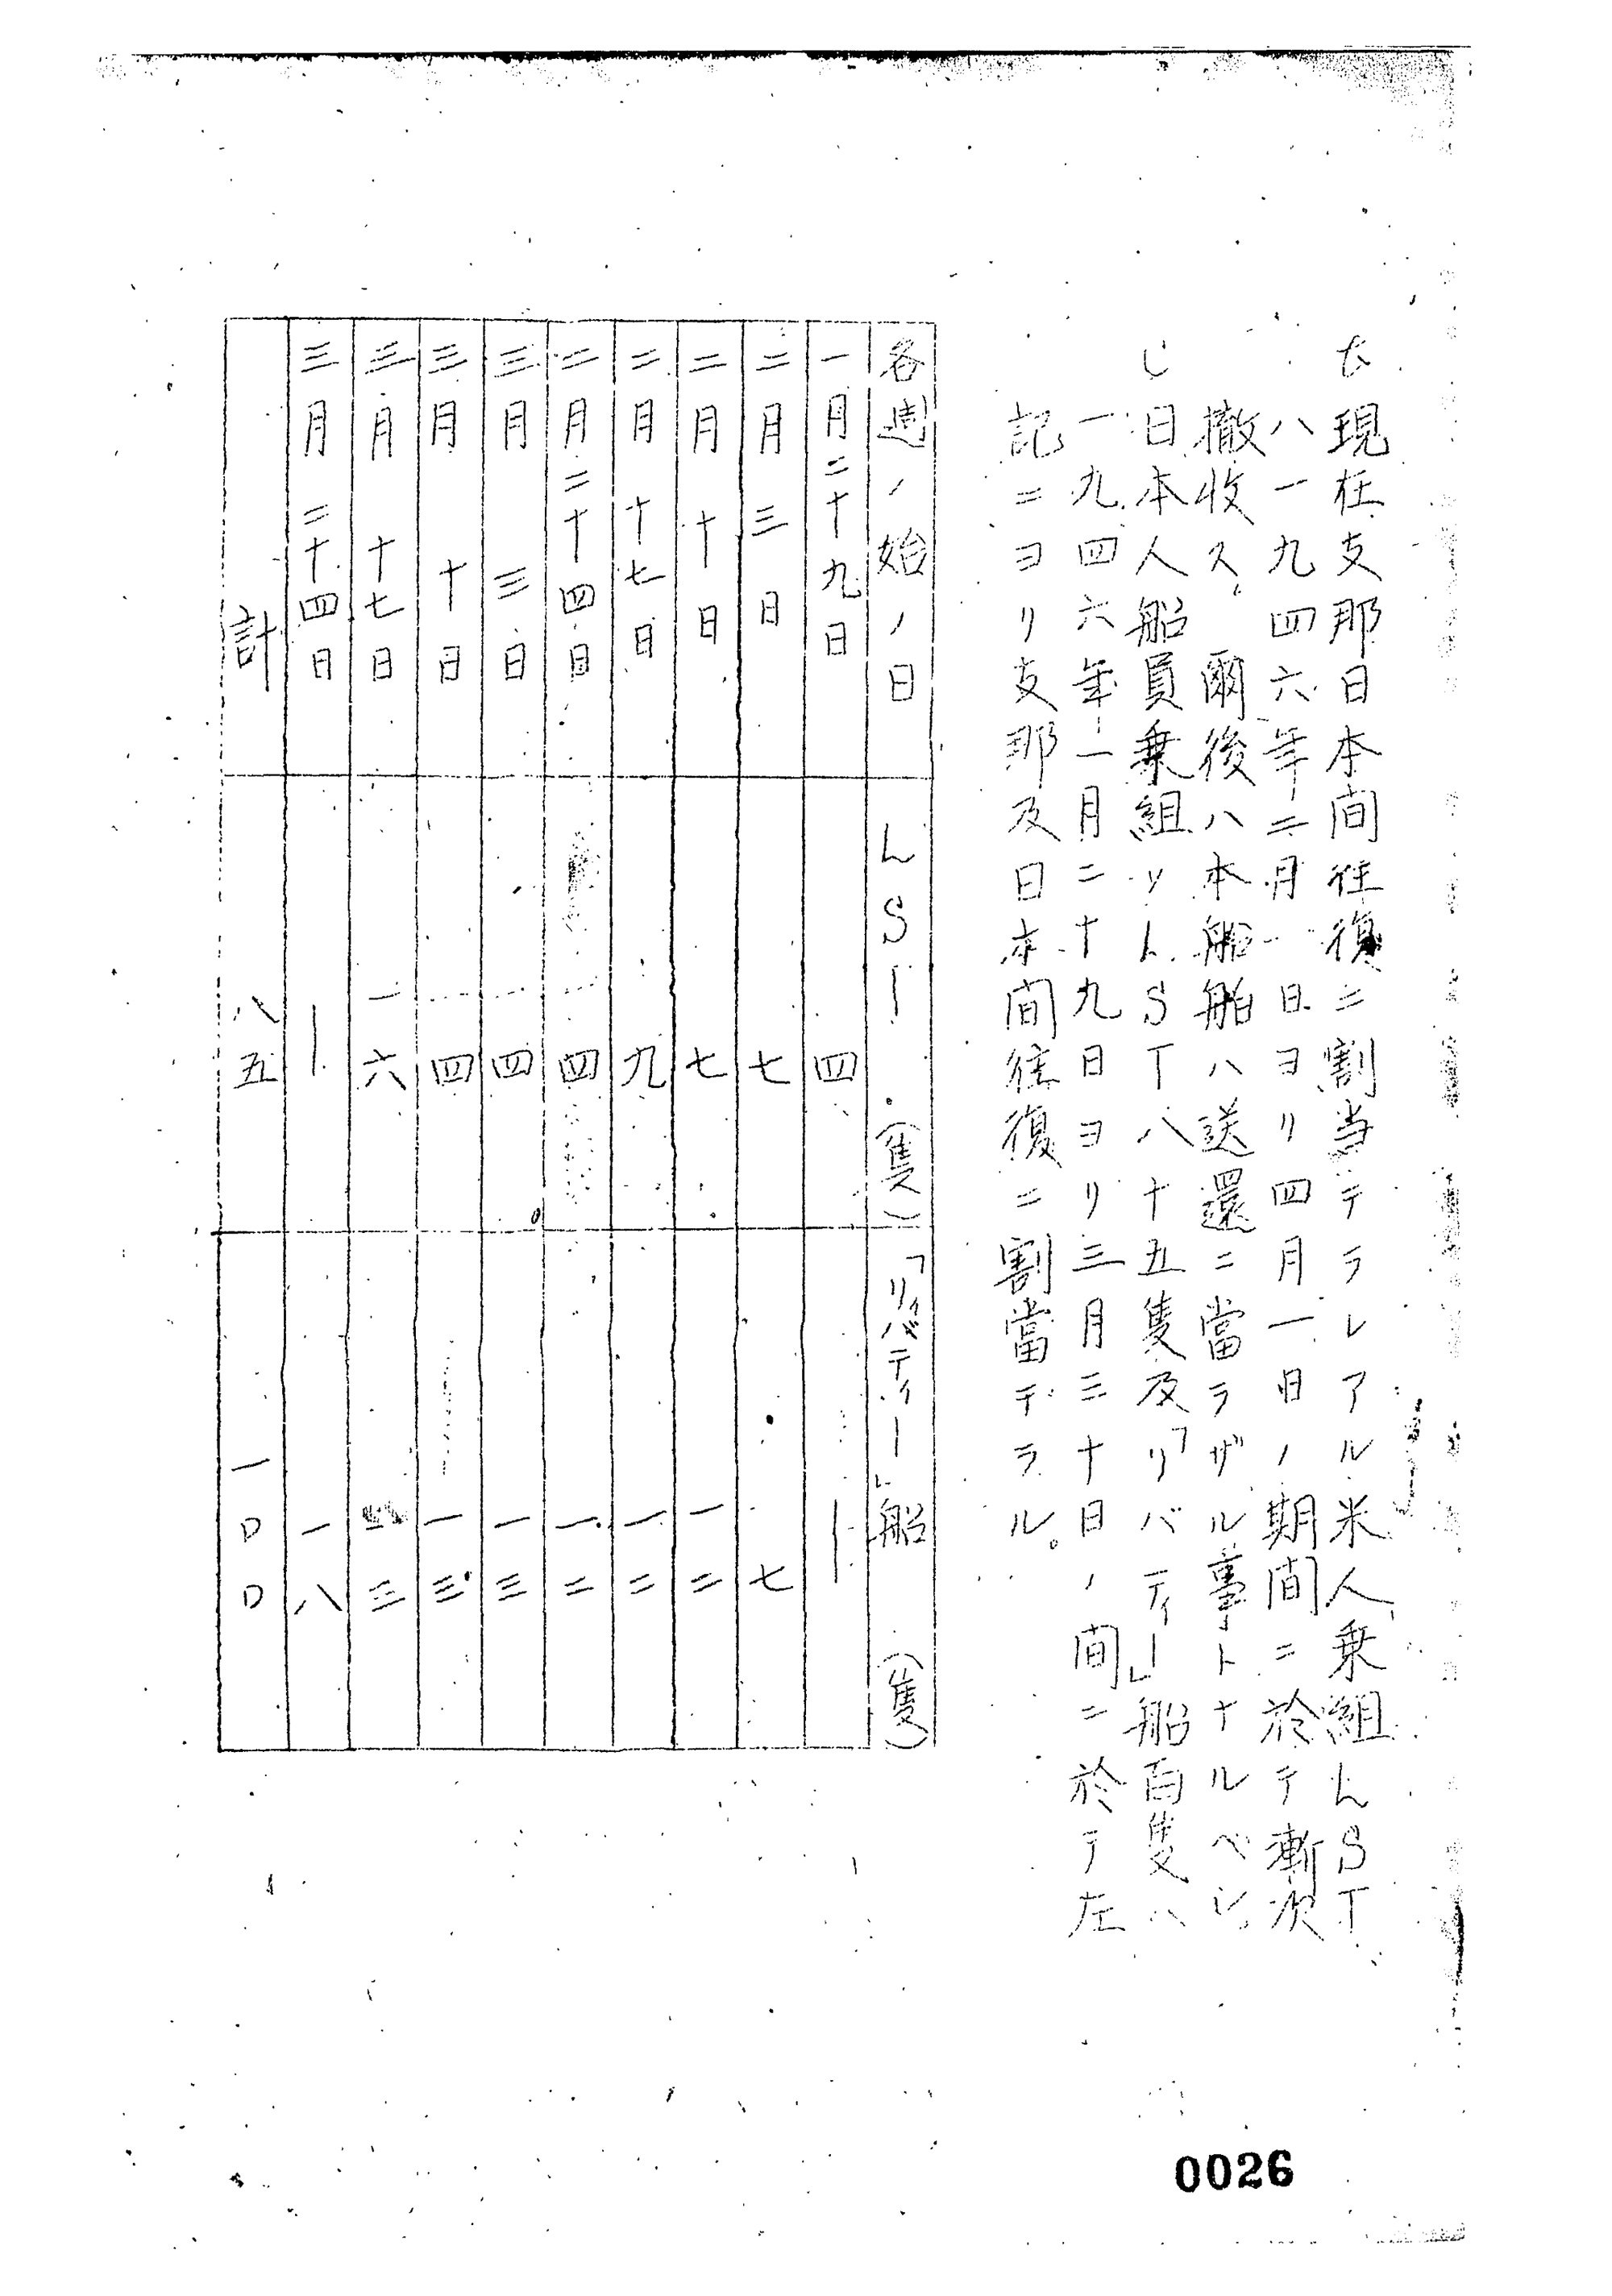 ち現在支那日本間往復ニ割当テラレアル米人乗組LST
ハ一九四六年二月一日ヨリ四月一日ノ期間ニ於テ漸次
撤收ス、爾後ハ本船舶ハ送還ニ當ラザル事トナルベシ、
し日本人船員乗組ノLST八十五隻及「リバティー」船百隻ハ
一九四六年一月二十九日ヨリ三月三十日ノ間ニ於テ左
記ニヨリ支那及日本間往復ニ割當テラル。
各週ノ始ノ日 LST(隻) 「リバティー」船(隻)
一月二十九日 四 ―
二月三日 七 七
二月十日 七 一二
二月十七日 九 一二
二月二十四日 四 一二
三月三日 四 一三
三月十日 四 一三
三月十七日 一六 一三
三月二十四日 ― 一八
計 八五 一〇〇
0026